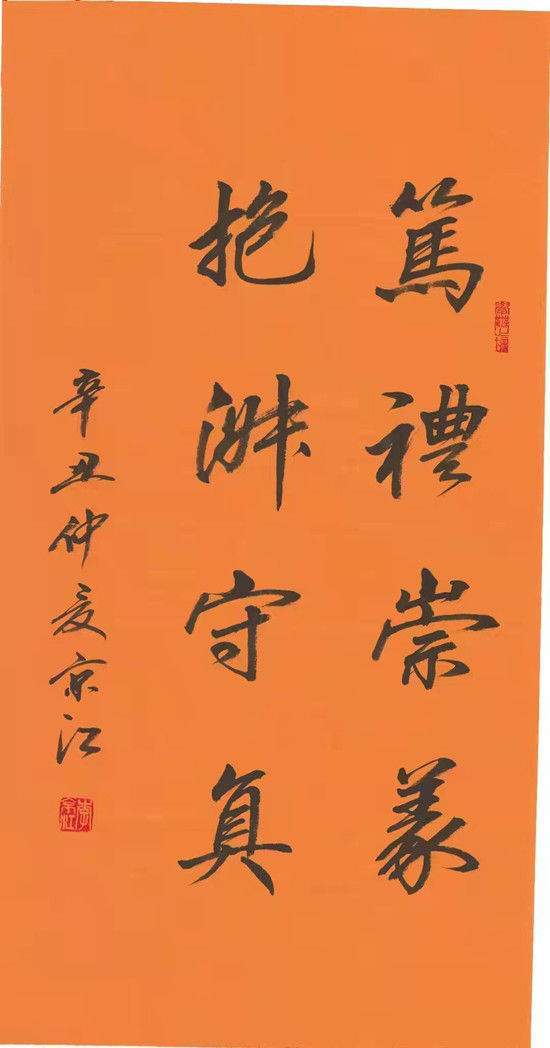 篤禮崇義
抱淑守真
辛丑仲夏京江